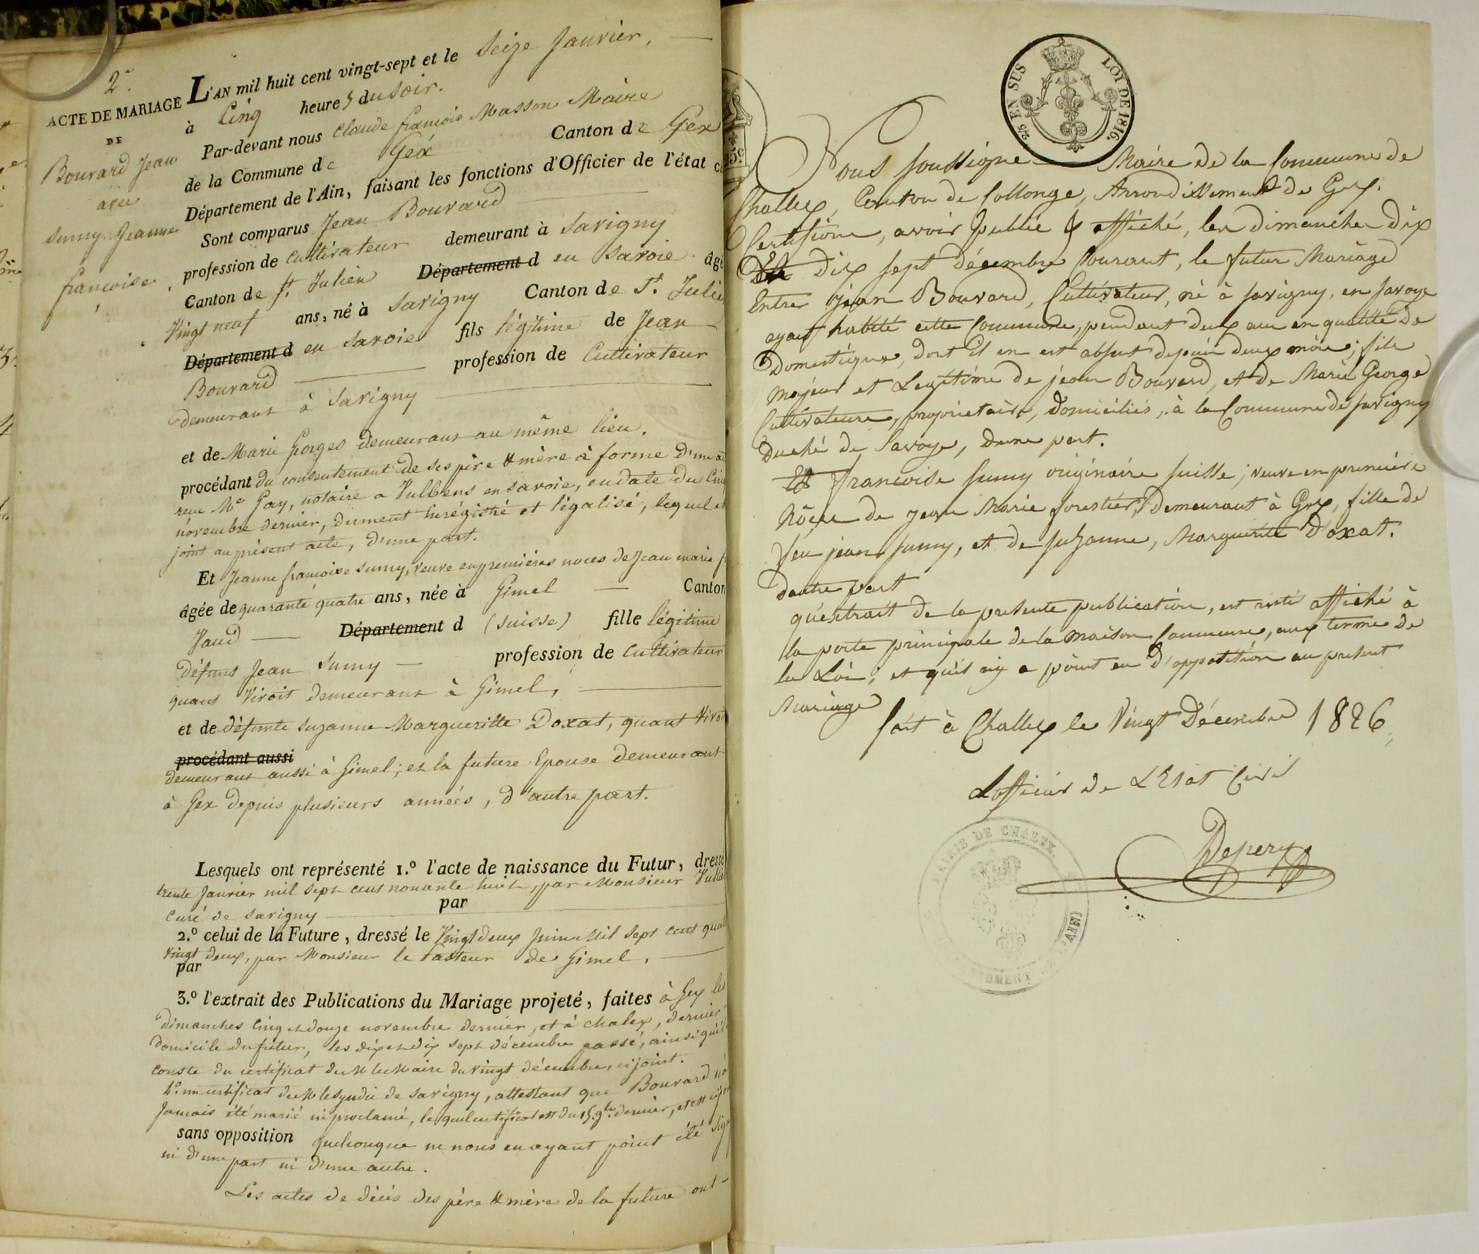 2.e
ACTE DE MARIAGE
DE
Bouvard Jean
avec
Sumy Jeanne
françoise.
L'AN mil huit cent vingt-sept et le Seize Janvier,
à Cinq heures du Soir.
Par-devant nous Claude françois Masson Maire
de la Commune de Gex Canton de Gex
Département de l'Ain, faisant les fonctions d'Officier de l'état
Sont comparus Jean Bouvard
profession de Cultivateur demeurant à Savigny
Canton de St. Julien Département d en Savoie âgé
Vingt neuf ans, né à Savigny Canton de St. Julie
Département d en Savoie fils légitime de Jean
Bouvard profession de Cultivateur
demeurant à Savigny
et de Marie Georges demeurant au même lieu.
procédant du consentement de ses père et mère à forme d'un
reçu Me. Gay, notaire a Vulbens en Savoie, en date du Cin
novembre dernier, dument Enregistré et légalisé, lequel
joint au présent acte, d'une part.
Et Jeanne françoise Sumy, veuve en premières noces de Jean marie
âgée de quarante quatre ans, née à Gimel Canton
Vaud Département d (Suisse) fille légitime
défunt Jean Sumy profession de Cultivateur
quant Vivoit demeurant à Gimel,
et de défunte Suzanne Margueritte Doxat, quant Viv
procédant aussi
demeurant aussi à Gimel; et la future Epouse demeurant
à Gex depuis plusieurs années, d'autre part.
Lesquels ont représenté 1.º l'acte de naissance du Futur, dressé
trente Janvier mil sept cent nonante huit, par Monsieur
par
Curé de Savigny
2.º celui de la Future, dressé le Vingt deux Juin Mil sept cent qua
vingt deux, par Monsieur le Pasteur de Gimel.
par
3.º l'extrait des Publications du Mariage projeté, faites à Gex les
dimanches Cinq et douze novembre dernier, et à Chalex, dernier
domicile du futur, les dix et dix sept décembre passé, ainsi qu'il
conste du certificat de Mr le Maire du vingt décembre, ci joint.
4.º un certificat de Mr le Syndic de Savigny, attestant que Bouvard n'a
Jamais été marié ni proclamé, lequel certificat est du 15 9bre dernier, et est
sans opposition quelconque ne nous en ayant point été
ni d'une part ni d'une autre.
Les actes de décès des père et mère de la future ont
25 EN SUS LOI DE 1816
Nous soussigne Maire de la Commune de
Challex, Canton de Collonge, Arrondissement de Gex.
Certifions, avoir publié & affiché, les dimanches dix
Et Dix sept décembre Courant, le futur Mariage
Entre jean Bouvard, Cultivateur, né à Savigny, en Savoye
ayant habité cette Commune, pendant deux ans en qualité de
Domestique, dont il en est absent depuis deux mois; fils
Majeur et Legitime de jean Bouvard, et de Marie George
Cultivateurs, proprietaire, Domiciliés, à la Commune de Savigny
Duché de Savoye, d'une part.
Et françoise Sumy originaire Suisse; veuve en première
Nôces de jean Marie forestier, Demeurant à Gex, fille de
feu jean Sumy, et de Suzanne, Marguerite Doxat.
dautre part
qu'extrait de la presente publication, est resté affiché à
la porte principale de la Maison Commune, aux terme de
la Loi, et qu'il n'y a point eu d'opposition au présent
Mariage
fait à Challex le Vingt Décembre 1826,
L'officier de L'Etat Civil
Depery
MAIRIE DE CHALEX